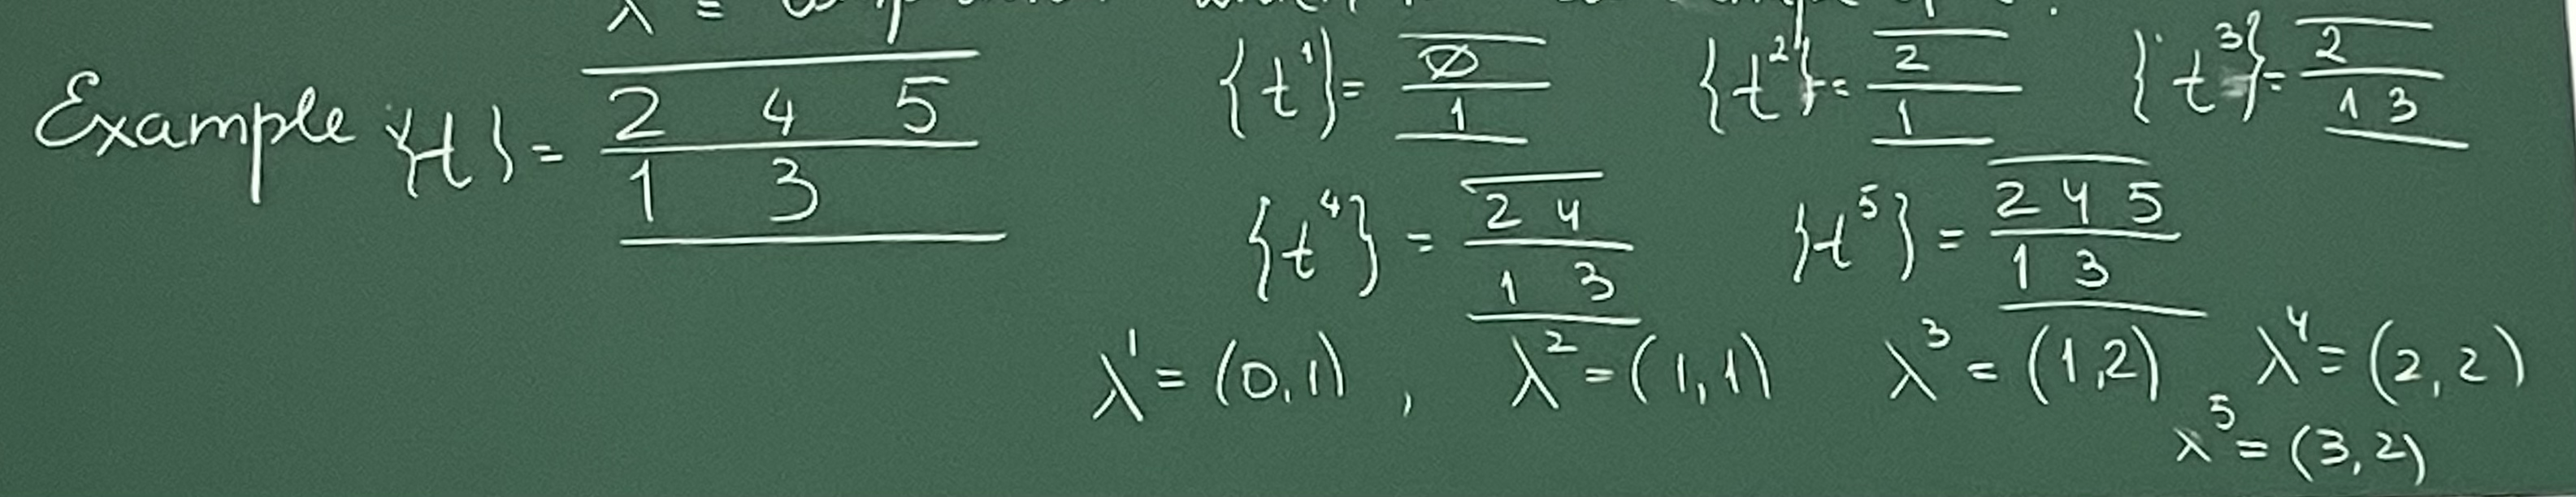 λ =
Example {t} = 2 4 5
1 3
{t¹} = ∅
1
{t²} = 2
1
{t³} = 2
1 3
{t⁴} = 2 4
1 3
{t⁵} = 2 4 5
1 3
λ¹ = (0,1) , λ² = (1,1) λ³ = (1,2) λ⁴ = (2,2)
λ⁵ = (3,2)